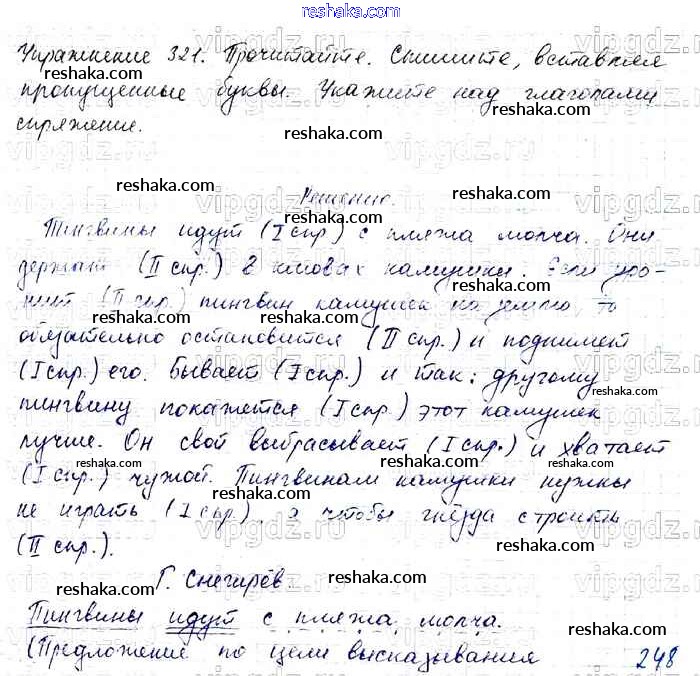 reshaka.com
Упражнение 321. Прочитайте. Спишите, вставляя
пропущенные буквы. Укажите над глаголами
спряжение.
Решение.
Пингвины идут (I спр.) с пляжа молча. Они
держат (II спр.) в клювах камушки. Если уро-
нит (II спр.) пингвин камушек на землю то
обязательно остановится (II спр.) и поднимет
(I спр.) его. Бывает (I спр.) и так: другому
пингвину покажется (I спр.) этот камушек
лучше. Он свой выбрасывает (I спр.) и хватает
(I спр.) чужой. Пингвинам камушки нужны
не играть (I спр.), а чтобы гнёзда строить
(II спр.).
Г. Снегирёв
Пингвины идут с пляжа молча.
(Предложение по цели высказывания
248